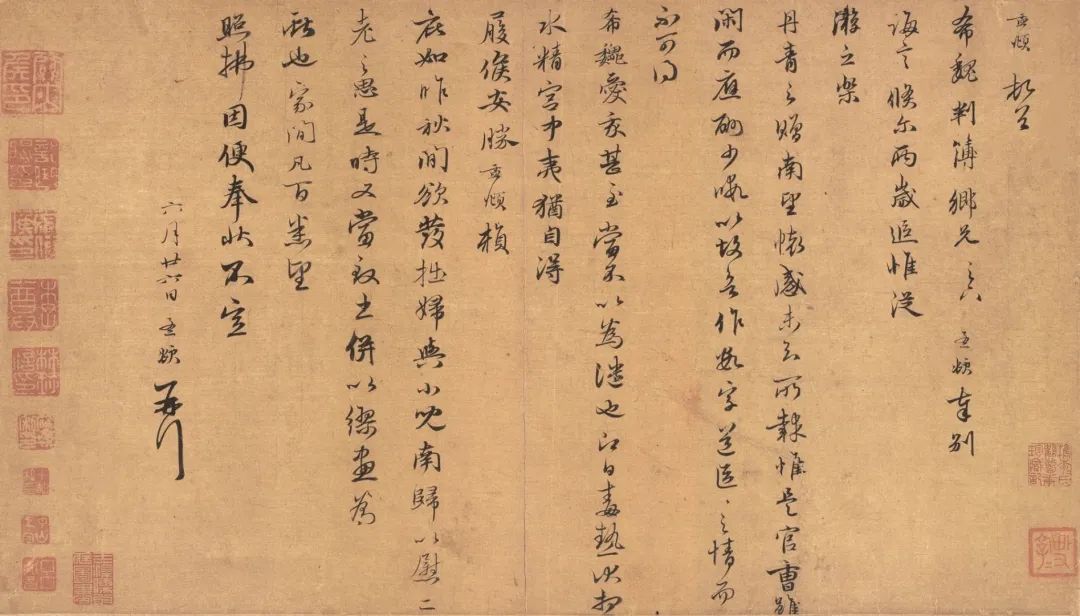 孟頫 頓首
希魏判簿鄉兄足下 孟頫奉別
誨言倏尔兩歲追惟從
游之樂
丹青之贈南望懷感未知所報惟是官曹雖
閑而應酬少暇以故欲作數字道區〻之情而
不可得
希魏愛我甚至當不以為譴也即日毒熱伏想
水精宮中夷猶自得
履候安勝孟頫賴
庇如昨秋間欲發拙婦與小兒南歸以慰二
老之思是時又當致土併以繆畫為
獻也家間凡百悉望
照拂因便奉狀不宣
六月廿六日 孟頫 再拜